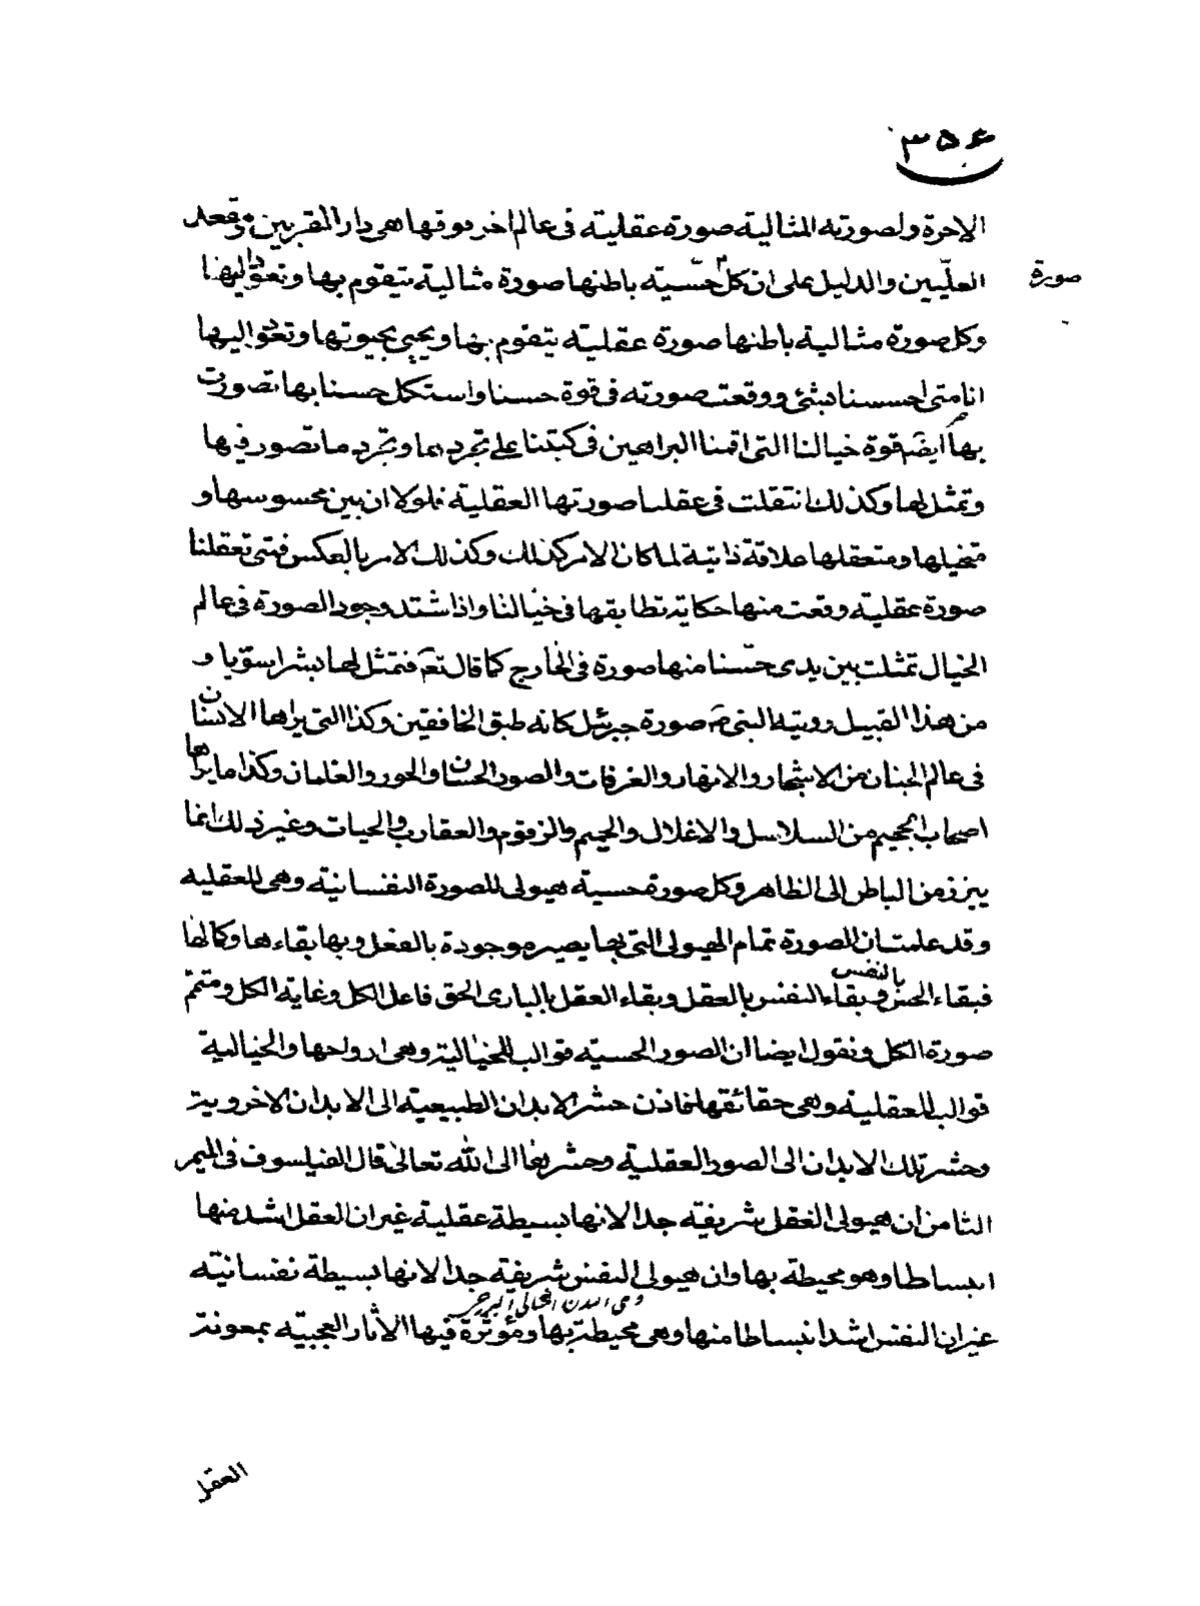 ٣٥٤
الاخرة ولصورته المثالية صورة عقلية فى عالم اخر فوقها هى دار المقربين ومقعد
العلّيين والدليل على ان كل حسّية باطنها صورة مثالية يتقوم بها وتعود اليها
صورة
وكل صورة مثالية باطنها صورة عقلية يتقوم بها ويحيى بحيوتها وتعود اليها
انا متى احسسنا بشئ ووقعت صورته فى قوة حسنا واستكمل حسنا بها تصورت
بها ايضا قوة خيالنا التى اقمنا البراهين فى كتبنا على تجردها وتجرد ما تصور فيها
وتمثل لها وكذلك انتقلت فى عقلنا صورتها العقلية فلولا ان بين محسوسها و
متخيلها ومتعقلها علاقة ذاتية لما كان الامر كذلك وكذلك الامر بالعكس فمتى تعقلنا
صورة عقلية وقعت منها حكاية تطابقها فى خيالنا واذا اشتد وجود الصورة فى عالم
الخيال تمثلت بين يدى حسّنا منها صورة فى الخارج كما قال تعم فتمثل لها بشرا سوّيا و
من هذا القبيل رويته النبى ص صورة جبرئيل كانه طبق الخافقين وكذا التى يراها الانسان
فى عالم الجنان من الاشجار والانهار والغرفات والصور الحسان والحور والغلمان وكذا ما يراها
اصحاب الجحيم من السلاسل والاغلال والحميم والزقوم والعقارب والحيات وغير ذلك انما
يبرز من الباطن الى الظاهر وكل صورة حسية هيولى للصورة النفسانية وهى للعقلية
وقد علمت ان الصورة تمام الهيولى التى بها يصير موجودة بالفعل وبها بقاءها وكمالها
فبقاء الحس بالنفس وبقاء النفس بالعقل وبقاء العقل بالبارى الحق فاعل الكل وغاية الكل ومتمّم
صورة الكل ونقول ايضا ان الصور الحسية قوالب للخيالية وهى ارواحها والخيالية
قوالب للعقلية وهى حقائقها فاذن حشر الابدان الطبيعية الى الابدان الاخروية
وحشر تلك الابدان الى الصور العقلية وحشرها الى الله تعالى قال الفيلسوف فى الميمر
الثامن ان هيولى العقل شريفة جدا لانها بسيطة عقلية غير ان العقل اشد منها
انبساطا وهو محيطة بها وان هيولى النفس شريفة جدا لانها بسيطة نفسانية
وهى البدن الخيالى البرزخى
غير ان النفس اشد انبساطا منها وهى محيطة بها ومؤثرة فيها الاثار العجيبة بمعونة
العقل